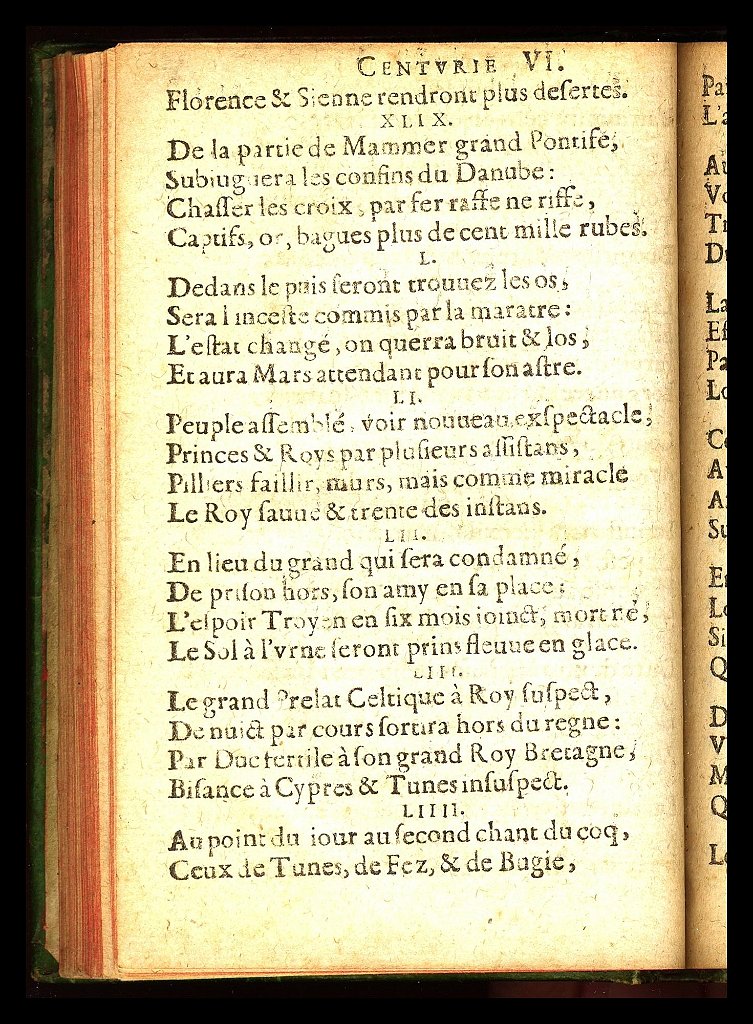 CENTVRIE VI.
Florence & Sienne rendront plus deſertes.
XLIX.
De la partie de Mammer grand Pontife,
Subiuguera les confins du Danube:
Chaſſer les croix, par fer raffe ne riffe,
Captifs, or, bagues plus de cent mille rubes.
L.
Dedans le puis ſeront trouuez les os,
Sera l inceſte commis par la maratre:
L'eſtat changé, on querra bruit & los,
Et aura Mars attendant pour ſon aſtre.
LI.
Peuple aſſemblé, voir nouueau exſpectacle,
Princes & Roys par pluſieurs aſſiſtans,
Pilliers faillir, murs, mais comme miracle
Le Roy ſauué & trente des inſtans.
LII.
En lieu du grand qui ſera condamné,
De priſon hors, ſon amy en ſa place:
L'eſpoir Troyen en ſix mois ioinct, mort né,
Le Sol à l'vrne ſeront prins fleuue en glace.
LIII.
Le grand Prelat Celtique à Roy ſuſpect,
De nuict par cours ſortira hors du regne:
Par Duc fertile à ſon grand Roy Bretagne,
Biſance à Cypres & Tunes inſuſpect.
LIIII.
Au point du iour au ſecond chant du coq,
Ceux de Tunes, de Fez, & de Bugie,
Pa
L'a
Au
Vo
Tr
D
La
Eſ
Pa
Lo
Ce
A
A
Su
E
Le
Si
Q
D
V
M
Q
Le